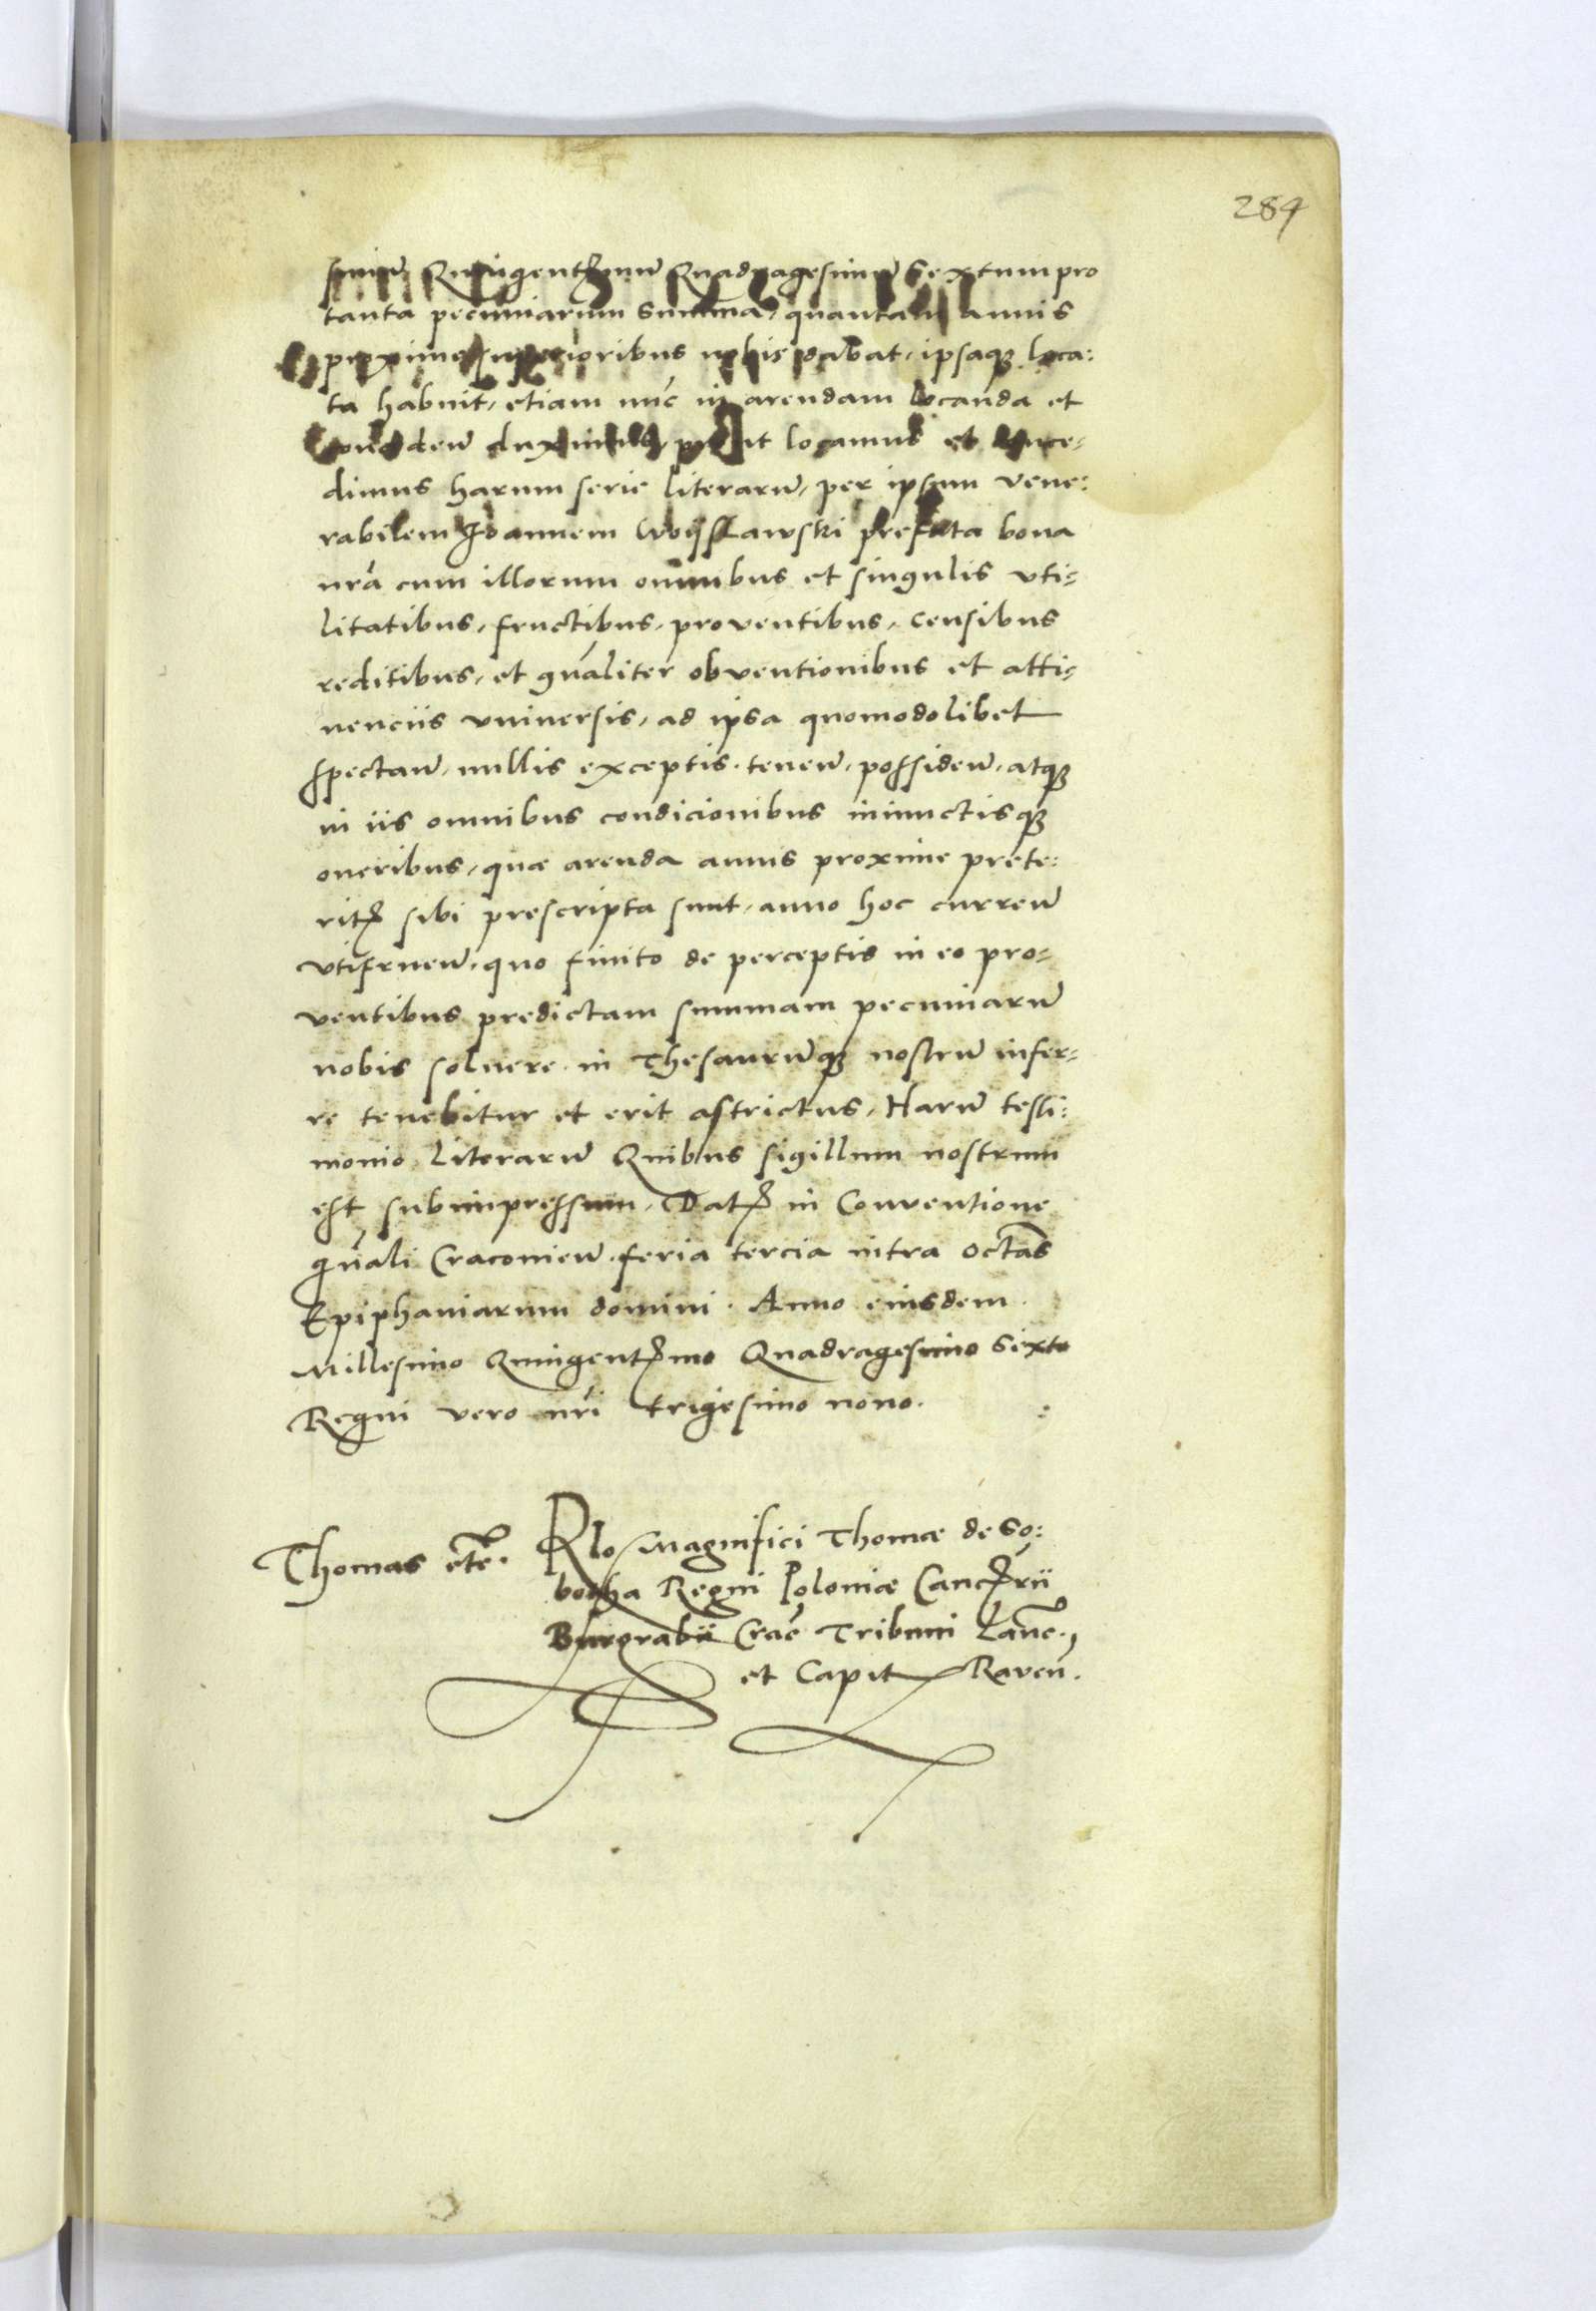 284
simũ Quingentesimũ Quadragesimũ Sextum pro
tanta pecuniarum summa, quantam annis
proxime superioribus nobis dabat, ipsaqȝ loca:
ta habuit, etiam nũc in arendam locanda et
conceden̄ duximus, prout locamus et conce-
dimus harum serie literarũ, per ipsum vene:
rabilem Joannem Woijslawski prefata bona
nrã cum illorum omnibus et singulis vti-
litatibus, fructibus, proventibus, censibus
reditibus, et gñaliter obventionibus et atti-
nenciis vniversis, ad ipsa quomodolibet
spectan̄, nullis exceptis. tenen̄, possiden̄, atqȝ
in iis omnibus condicionibus iniunctisqȝ
oneribus, quæ arenda annis proxime prete:
rit̃ sibi prescripta sunt, anno hoc curren̄
vtifruen̄, quo finito de perceptis in eo pro-
ventibus predictam summam pecuniarũ
nobis solvere. in Thesaurũqȝ nostrũ infer-
re tenebitur et erit astrictus, Harũ testi:
monio literarũ Quibus sigillum nostrum
est subimpressum, Dat̃ in Conventione
gñali Cracovien̄. feria tercia intra octãs
Epiphaniarum domini. Anno eiusdem.
Millesimo Quingent̃mo Quadragesimo Sexto
Regni vero nrĩ trigesimo nono. :
Thomas etc̃. Rlo Magnifici Thomæ de So:
botha Regni Poloniæ Canc̃rii
Burgrabii Crac̃ Tribuni Lanc̃.,
et Capit Raven̄.